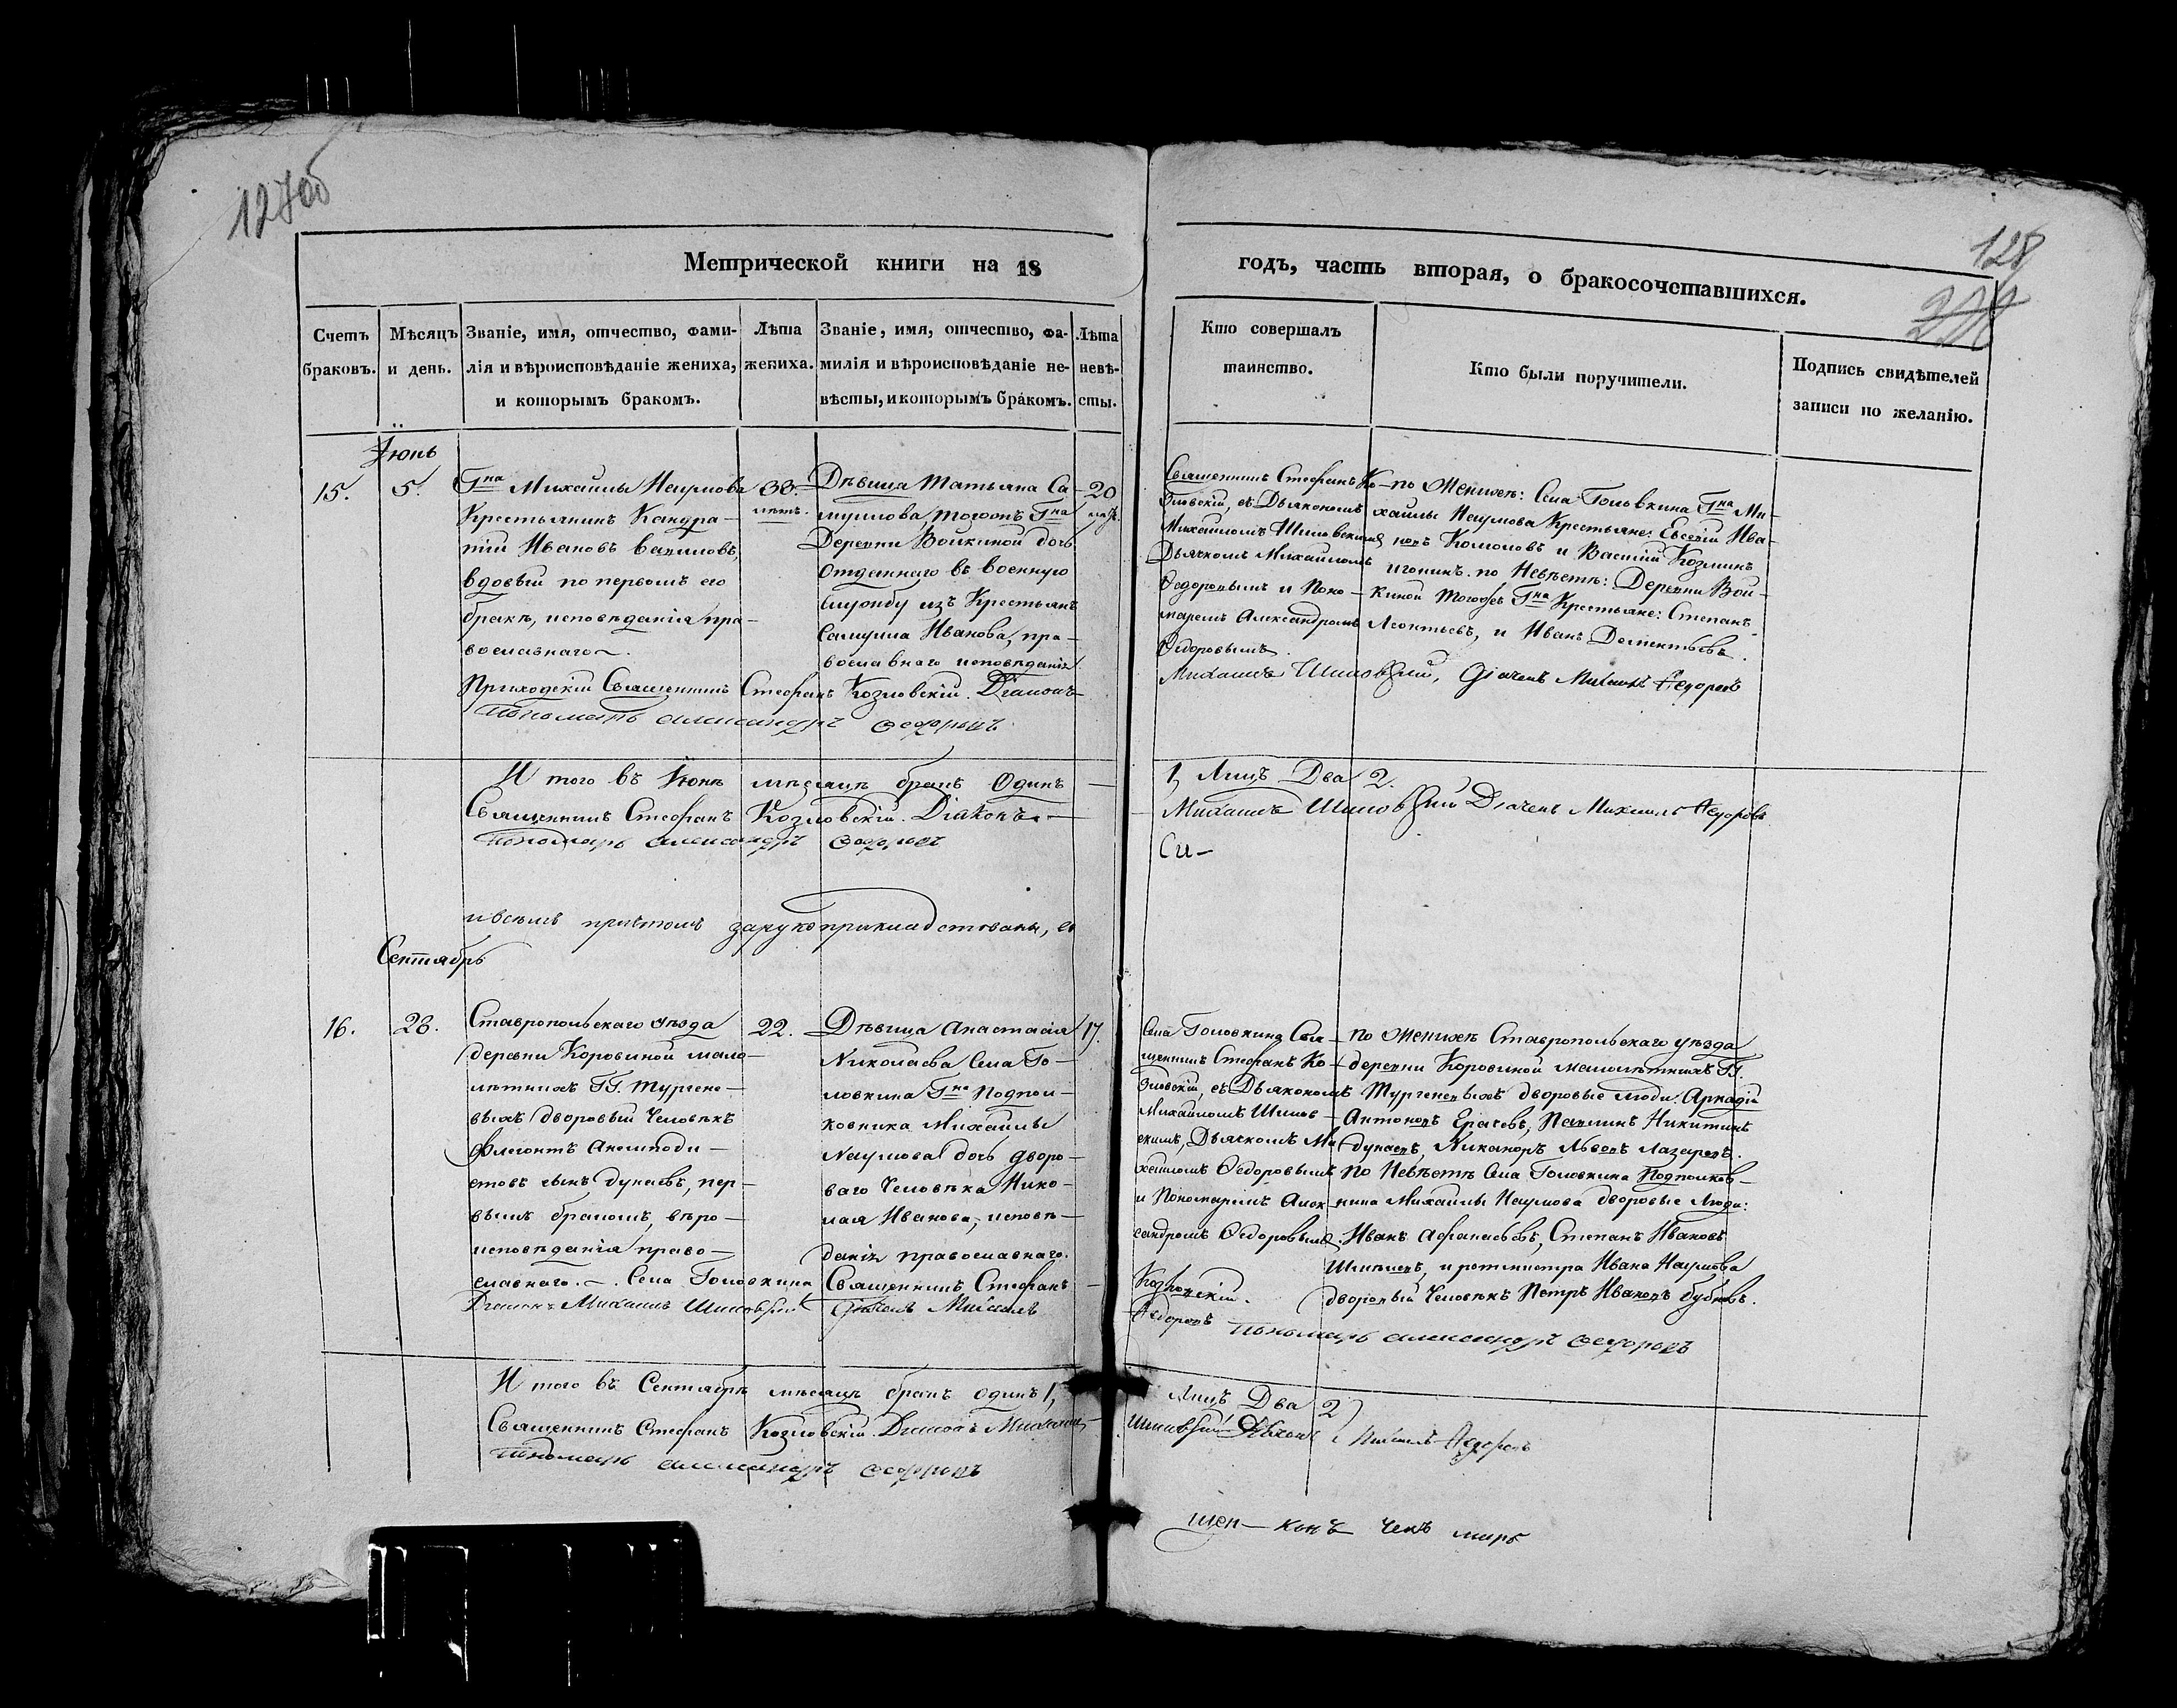 127об
128
Метрической книги на 18
годъ, часть вторая, о бракосочетавшихся.
Счетъ браковъ.
Мѣсяцъ и день.
Званіе, имя, отчество, фами-
лія и вѣроисповѣданіе жениха,
и которымъ бракомъ.
Лѣта
жениха.
Званіе, имя, отчество, фа-
милія и вѣроисповѣданіе не-
вѣсты, и которымъ бракомъ.
Лѣта
невѣ-
сты.
Кто совершалъ
таинство.
Кто были поручители.
Подпись свидѣтелей
записи по желанію.
Іюнь
15.
5.
Гна Михайлы Наумова
Крестьянинъ Кандра-
тій Ивановъ
вдовый по первомъ его
бракѣ, исповѣданія пра-
вославнаго.
33.
лѣтъ.
Дѣвица Татьяна Са-
муилова, тогожъ Гна
Деревни Войкиной дочь
отданнаго въ военную
службу изъ Крестьянъ
Самуила Иванова, пра-
вославнаго исповѣданія
20
Священникъ Стефанъ Ко-
зловскій, съ Дьякономъ
Михайломъ Шиловскимъ
Дьячкомъ Михайломъ
Федоровымъ и Поно-
маремъ Александромъ
Федоровымъ.
по Женихѣ: Села Головкина Гна Ми-
хайлы Наумова Крестьяне: Евсевій Ива-
новъ Комоловъ и Василій Козминъ
Игонинъ. по Невѣстѣ: Деревни Вой-
киной тогожъ Гна Крестьяне: Степанъ
Леонтьевъ, и Иванъ Дементьевъ.
Приходскій Священникъ Стефанъ Козловскій. Діаконъ
Михаилъ Шиловскій, Дiачекъ Михаилъ Федоровъ
Пономарь Александръ Федоровъ
И того въ Іюнѣ мѣсяцѣ бракъ Одинъ —
1, Лицъ Два 2.
Священникъ Стефанъ Козловскій. Діаконъ
Михаилъ Шиловскій Дiачекъ Михаилъ Федоровъ
Пономарь Александръ Федоровъ
Си-
и всѣмъ причтомъ зарукоприкладствованы,
Сентябрь
16.
28.
Ставропольскаго уѣзда
деревни Коровиной мало-
лѣтнихъ ГГ. Тургене-
выхъ дворовый Человѣкъ
Флегонтъ Анемподи-
стовъ сынъ Дунаевъ, пер-
вымъ бракомъ, вѣро-
исповѣданія право-
славнаго.
22.
Дѣвица Анастасія
Николаева Села Го-
ловкина Гна Подпол-
ковника Михайлы
Наумова дочь дворо-
ваго Человѣка Нико-
лая Иванова, исповѣ-
данія православнаго.
17.
Села Головкина Свя-
щенникъ Стефанъ Ко-
зловскій, съ Дьякономъ
Михайломъ Шилов-
скимъ, Дьячкомъ Ми-
хайломъ Федоровымъ
и Пономаремъ Алек-
сандромъ Федоровымъ.
по Женихѣ Ставропольскаго уѣзда
деревни Коровиной малолѣтнихъ ГГ.
Тургеневыхъ дворовые люди: Аркадій
Антоновъ Ерачевъ, Павлинъ Никитинъ
Дунаевъ, Никаноръ Львовъ Лазаревъ.
по Невѣстѣ Села Головкина Подполков-
ника Михайлы Наумова дворовые Люди:
Иванъ Афанасьевъ, Степанъ Ивановъ
и ротмистра Ивана Наумова
дворовый Человѣкъ Петръ Ивановъ
Села Головкина Священникъ Стефанъ
Козловскій.
Діаконъ Михаилъ Шиловскій Дьячекъ Михаилъ
Федоровъ Пономарь Александръ Федоровъ
И того въ Сентябрѣ мѣсяцѣ бракъ одинъ 1,
Лицъ Два 2
Священникъ Стефанъ Козловскій. Діаконъ Михаилъ
Шиловскій Дьячекъ Михаилъ Федоровъ
Пономарь Александръ Федоровъ
щен- конъ чекъ марь